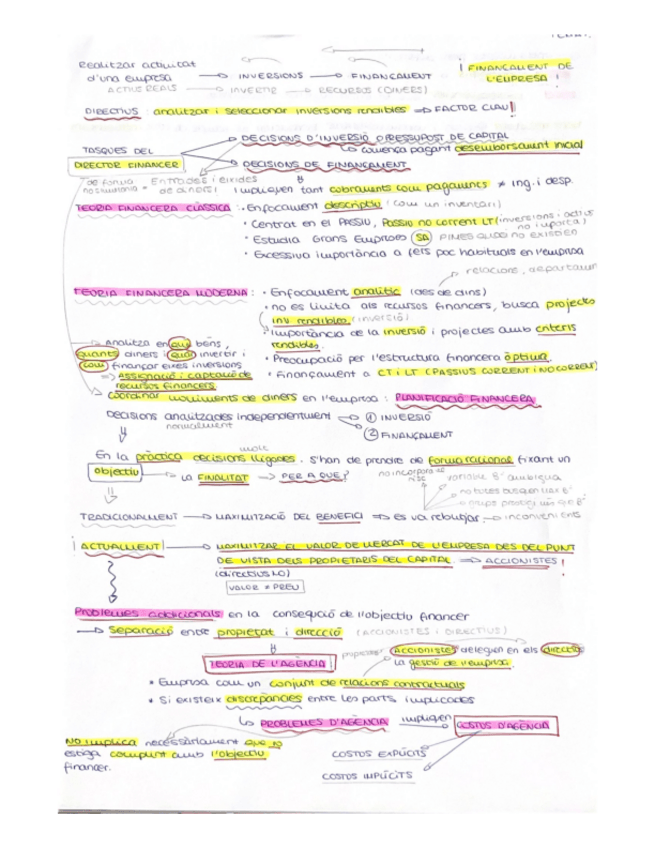 Realitzar activitat
d'una empresa → INVERSIONS → FINANÇAMENT
¡FINANÇAMENT DE L'EMPRESA!
ACTIUS REALS → INVERTIR → RECURSOS (DINERS)
DIRECTIUS: analitzar i seleccionar inversions rendibles ⇒ FACTOR CLAU!
TASQUES DEL DIRECTOR FINANCER
→ DECISIONS D'INVERSIÓ O PRESSUPOST DE CAPITAL
↳ comença pagant desemborsament inicial
→ DECISIONS DE FINANÇAMENT
de forma
Entrades i eixides de diners!
impliquen tant cobraments com pagaments ≠ ing. i desp.
TEORIA FINANCERA CLÀSSICA: · Enfocament descriptiu (com un inventari)
· Centrat en el PASSIU, Passiu no corrent LT (inversions i actius no importa)
· Estudia Grans Empreses (SA) PIMES quasi no existien
· Excessiva importància a fets poc habituals en l'empresa
relacions, departament
TEORIA FINANCERA MODERNA: · Enfocament analític (des de dins)
· no es limita als recursos financers, busca projectes
inv rendibles (inversió)
· Importància de la inversió i projectes amb criteris
rendibles.
· Preocupació per l'estructura financera òptima.
· Finançament a CT i LT (PASSIUS CORRENT i NO CORRENT)
→ Analitza en que bens,
quants diners i quan invertir i
com finançar eixes inversions
⇒ Assignació i captació de
recursos financers.
Coordinar moviments de diners en l'empresa: PLANIFICACIÓ FINANCERA
Decisions analitzades independentment
normalment
① INVERSIÓ
② FINANÇAMENT
molt
En la pràctica decisions lligades. S'han de prendre de forma racional fixant un
objectiu → LA FINALITAT → PER A QUE?
no incorpora el risc
variable Bº ambigua
no totes busquen max Bº
TRADICIONALMENT → MAXIMITZACIÓ DEL BENEFICI ⇒ es va rebutjar → inconvenients
¡ACTUALMENT! → MAXIMITZAR EL VALOR DE MERCAT DE L'EMPRESA DES DEL PUNT
DE VISTA DELS PROPIETARIS DEL CAPITAL ⇒ ACCIONISTES!
(directius NO)
VALOR ≠ PREU
Problemes addicionals en la consecució de l'objectiu financer
→ Separació entre propietat i direcció (ACCIONISTES i DIRECTIUS)
TEORIA DE L'AGÈNCIA
ACCIONISTES deleguen en els directius
La gestió de l'empresa.
* Empresa com un conjunt de relacions contractuals
* Si existeix discrepàncies entre les parts implicades
↳ PROBLEMES D'AGÈNCIA impliquen → COSTOS D'AGÈNCIA
No implica necessàriament que no
estiga complint amb l'objectiu
financer.
COSTOS EXPLÍCITS
COSTOS IMPLÍCITS